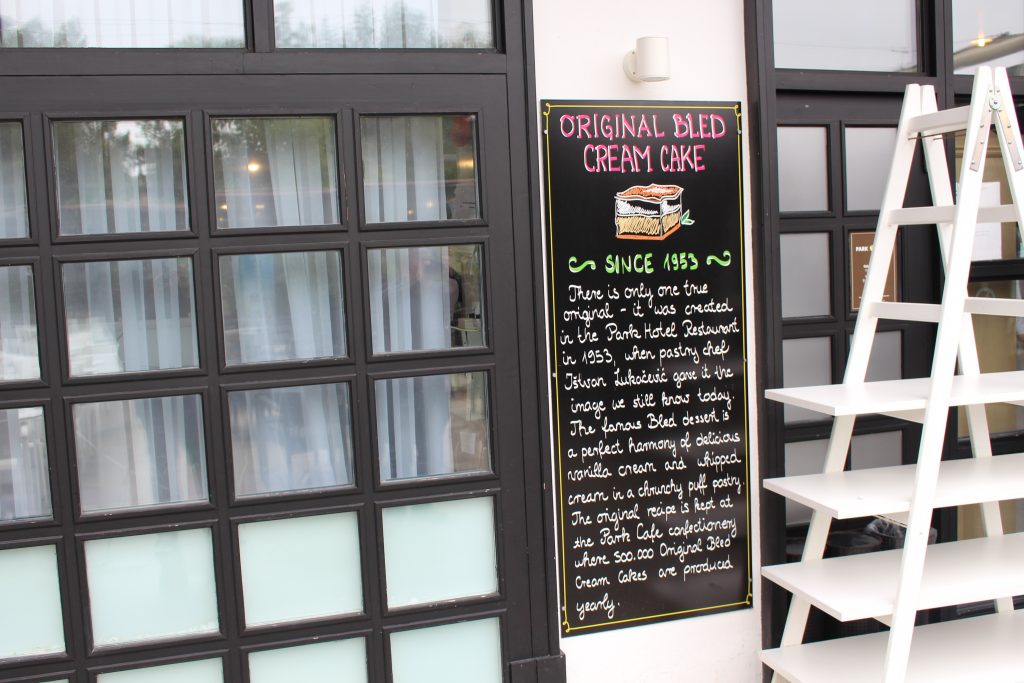 ORIGINAL BLED
CREAM CAKE
SINCE 1953
There is only one true
original - it was created
in the Park Hotel Restaurant
in 1953, when pastry chef
Ištvan Lukačević gave it the
image we still know today.
The famous Bled dessert is
a perfect harmony of delicious
vanilla cream and whipped
cream in a chrunchy puff pastry.
The original recipe is kept at
the Park Cafe confectionery
where 500.000 Original Bled
Cream Cakes are produced
yearly.
PARK